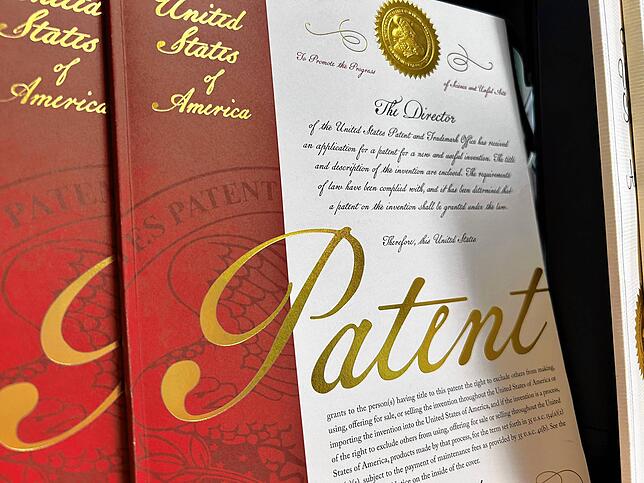 United
States
of
America
United
States
of
America
To Promote the Progress
of Science and Useful Arts
The Director
of the United States Patent and Trademark Office has received
an application for a patent for a new and useful invention. The title
and description of the invention are enclosed. The requirements
of law have been complied with, and it has been determined that
a patent on the invention shall be granted under the law.
Therefore, this United States
PATENT
ES PATENT
Patent
grants to the person(s) having title to this patent the right to exclude others from making,
using, offering for sale, or selling the invention throughout the United States of America or
importing the invention into the United States of America, and if the invention is a process,
of the right to exclude others from using, offering for sale or selling throughout the United
States of America, products made by that process, for the term set forth in 35 U.S.C. 154(a)(2)
subject to the payment of maintenance fees as provided by 35 U.S.C. 41(b). See the
on the inside of the cover.